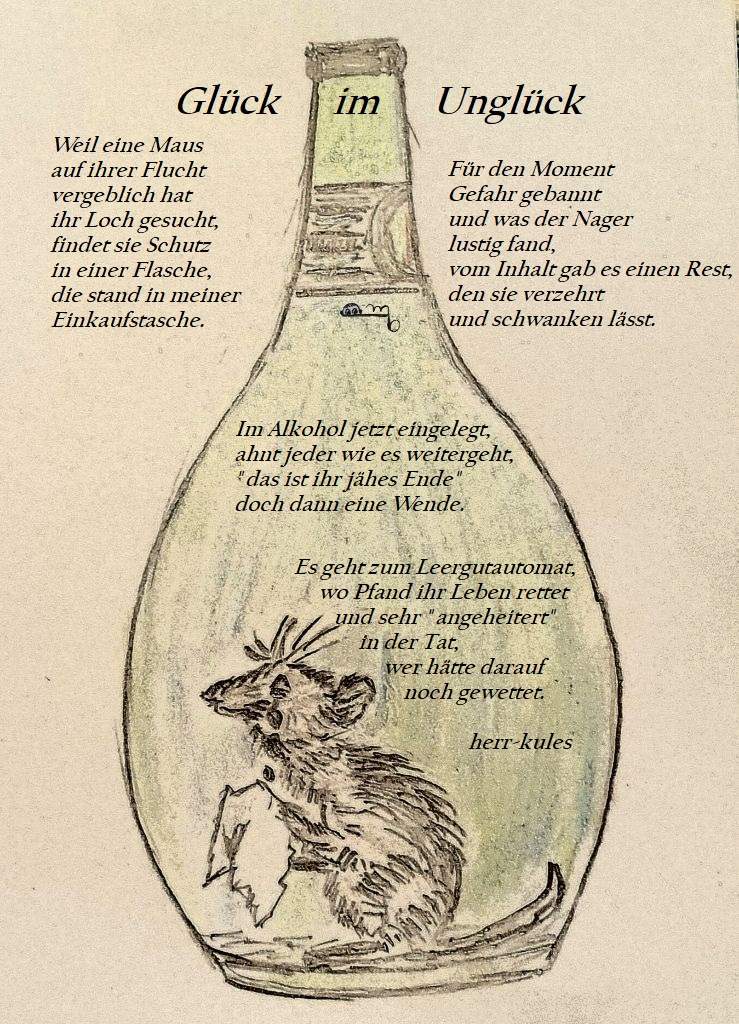 Glück im Unglück
Weil eine Maus
auf ihrer Flucht
vergeblich hat
ihr Loch gesucht,
findet sie Schutz
in einer Flasche,
die stand in meiner
Einkaufstasche.
Für den Moment
Gefahr gebannt
und was der Nager
lustig fand,
vom Inhalt gab es einen Rest,
den sie verzehrt
und schwanken lässt.
Im Alkohol jetzt eingelegt,
ahnt jeder wie es weitergeht,
"das ist ihr jähes Ende"
doch dann eine Wende.
Es geht zum Leergutautomat,
wo Pfand ihr Leben rettet
und sehr "angeheitert"
in der Tat,
wer hätte darauf
noch gewettet.
herr-kules